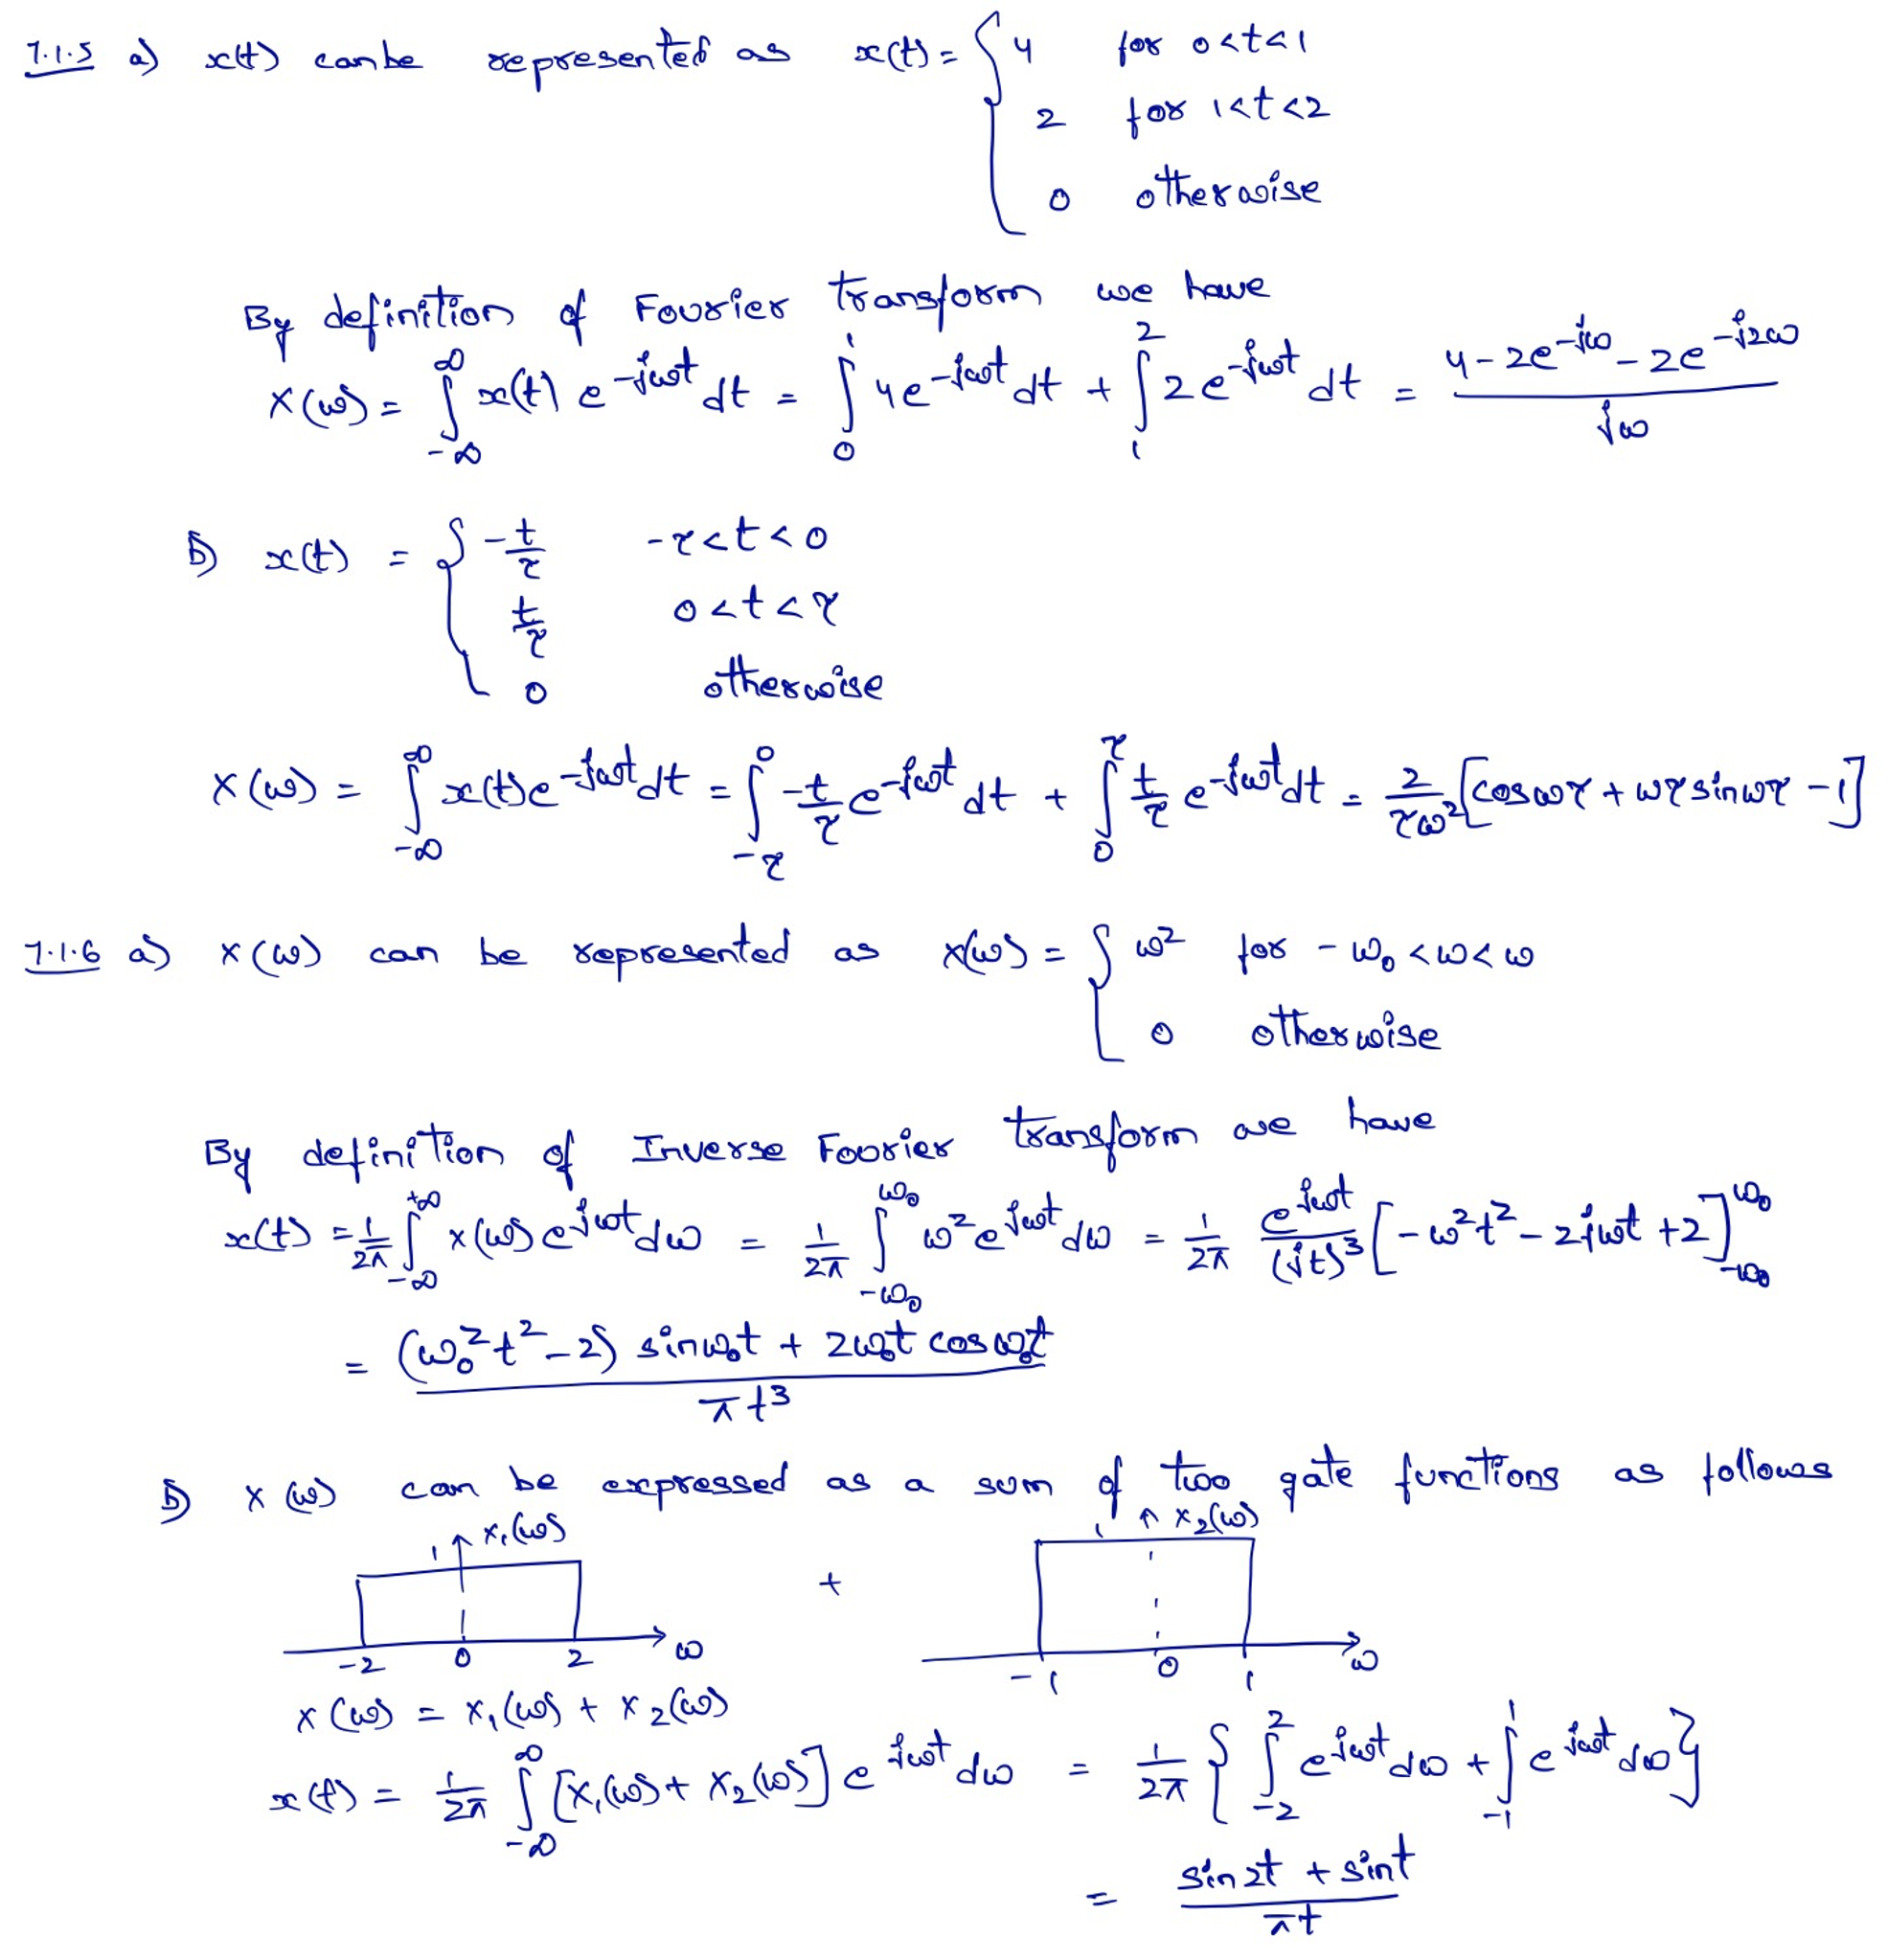 7.1.5 a) x(t) can be represented as x(t) = { 4 for 0<t<1
2 for 1<t<2
0 otherwise
By definition of Fourier transform we have
X(ω) = ∫_{-∞}^{∞} x(t) e^{-jωt} dt = ∫_0^1 4e^{-jωt} dt + ∫_1^2 2e^{-jωt} dt = (4-2e^{-jω}-2e^{-j2ω})/(jω)
b) x(t) = { -t/τ -τ<t<0
t/τ 0<t<τ
0 otherwise
X(ω) = ∫_{-∞}^{∞} x(t)e^{-jωt} dt = ∫_{-τ}^0 -t/τ e^{-jωt} dt + ∫_0^τ t/τ e^{-jωt} dt = 2/(τω²) [cosωτ + ωτ sinωτ - 1]
7.1.6 a) X(ω) can be represented as X(ω) = { ω² for -ω₀<ω<ω
0 otherwise
By definition of Inverse Fourier transform we have
x(t) = 1/2π ∫_{-∞}^{+∞} X(ω) e^{jωt} dω = 1/2π ∫_{-ω₀}^{ω₀} ω² e^{jωt} dω = 1/2π e^{jωt}/(jt)³ [-ω²t² - 2jωt + 2]_{-ω₀}^{ω₀}
= ((ω₀²t²-2) sinω₀t + 2ω₀t cosω₀t)/(πt³)
b) X(ω) can be expressed as a sum of two gate functions as follows
1 X₁(ω) + 1 X₂(ω)
-2 0 2 ω -1 0 1 ω
X(ω) = X₁(ω) + X₂(ω)
x(t) = 1/2π ∫_{-∞}^{∞} [X₁(ω) + X₂(ω)] e^{jωt} dω = 1/2π { ∫_{-2}^2 e^{jωt} dω + ∫_{-1}^1 e^{jωt} dω }
= (sin2t + sint)/(πt)